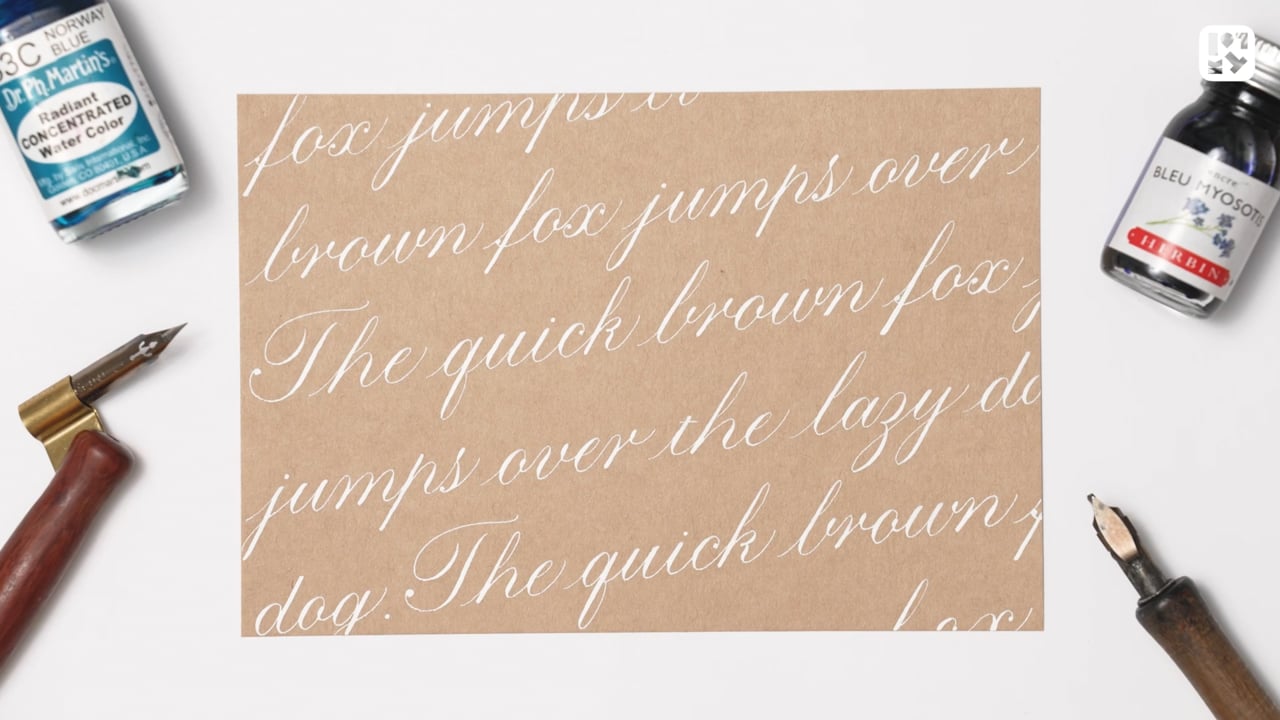 3C NORWAY
BLUE
Dr. Ph. Martin's
Radiant
CONCENTRATED
Water Color
Mfg. by Salis International, Inc.
Golden, CO 80401, U.S.A.
fox jumps
brown fox jumps over
The quick brown fox
jumps over the lazy do
dog. The quick brown
fox
encre
BLEU MYOSOTIS
HERBIN